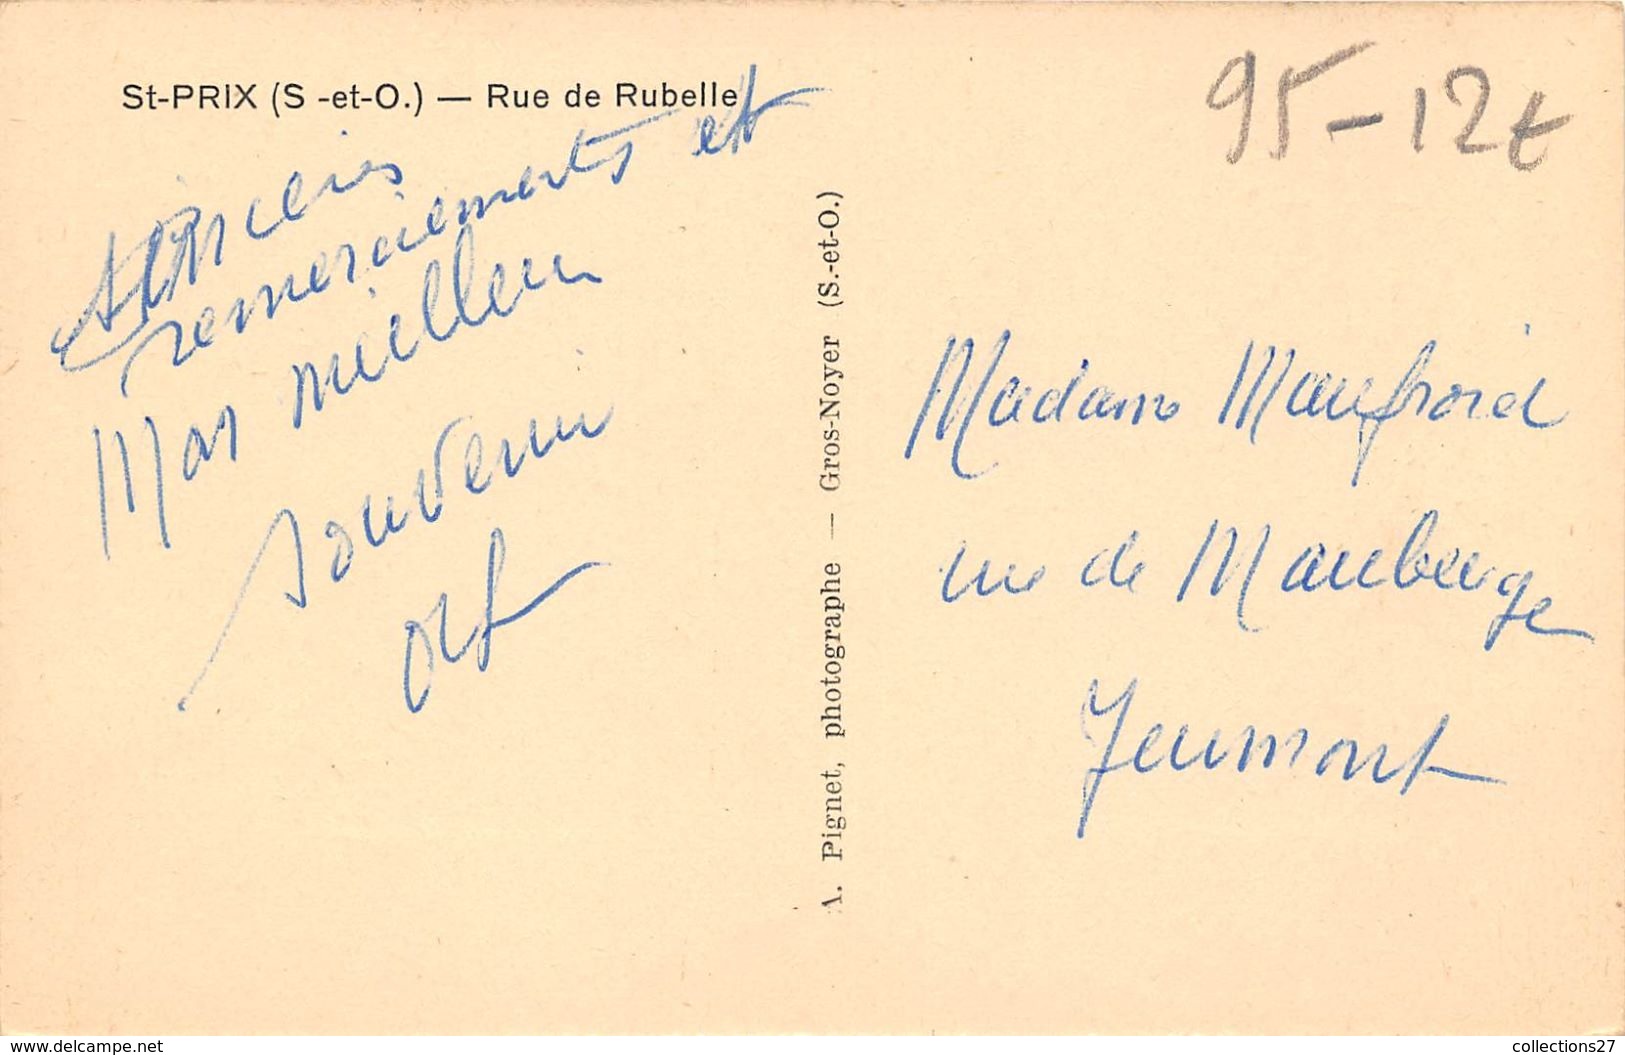 St-PRIX (S -et-O.) — Rue de Rubelle
95-12
remerciements et
meilleur
souvenir
A. Pignet, photographe — Gros-Noyer (S.-et-O.)
Madame Maufroid
rue de Maubeuge
Jeumont
www.delcampe.net
collections27